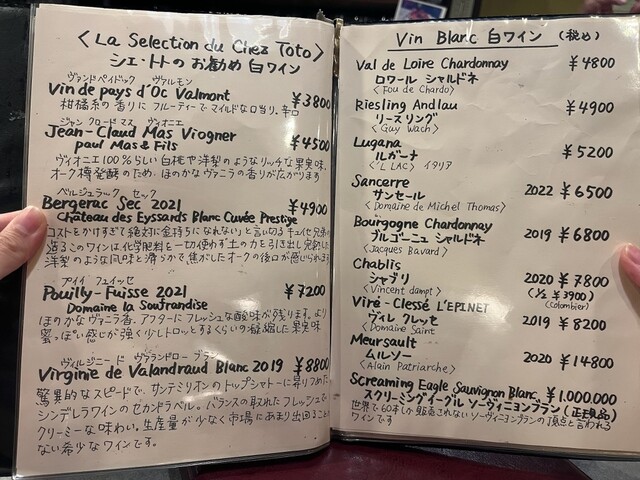 〈La Selection du Chez Toto〉
シェ・トトのお勧め白ワイン
ヴァンドペイドック ヴァルモン
Vin de pays d'Oc Valmont ¥3800
柑橘系の香りにフルーティーでマイルドな口当り。辛口
ジャン クロード マス ヴィオニエ
Jean-Claud Mas Viogner ¥4500
paul Mas & Fils
ヴィオニエ100%らしい白桃や洋梨のようなリッチな果実味。
オーク樽発酵のため、ほのかなヴァニラの香りが広がります
ベルジュラック セック
Bergerac Sec 2021 ¥4900
Château des Eyssards Blanc Cuvée Prestige
コストをかけすぎて絶対に金持ちになれない」と言い切るキュイセ兄弟の
造るこのワインは、化学肥料を一切使わず土の力を引き出し完熟した
洋梨のような風味と滑らかで、焦がしたオークの後口が感じられます
プイイ フュイッセ
Pouilly-Fuisse 2021 ¥7200
Domaine la Soufrandise
ほのかなヴァニラ香。アフターにフレッシュな酸味が残ります。より
蜜っぽい感じが強く少しトロッとするくらいの凝縮した果実味
ヴィルジニー ド ヴァランドロー ブラン
Virginie de Valandraud Blanc 2019 ¥8800
驚異的なスピードで、サンテミリオンのトップシャトーに昇りつめた
シンデレラワインのセカンドラベル。バランスの取れたフレッシュで
クリーミーな味わい。生産量が少なく市場にあまり出回ることが
ない希少なワインです。
Vin Blanc 白ワイン (税込)
Val de Loire Chardonnay ¥4800
ロワール シャルドネ
〈Fou de Chardo〉
Riesling Andlau ¥4900
リースリング
〈Guy Wach〉
Lugana ¥5200
ルガーナ
〈"L LAC〉 イタリア
Sancerre 2022 ¥6500
サンセール
〈Domaine de Michel Thomas〉
Bourgogne Chardonnay 2019 ¥6800
ブルゴーニュ シャルドネ
〈Jacques Bavard〉
Chablis 2020 ¥7800
シャブリ (1/2 ¥3900)
〈Vincent dampt〉 (Colombier)
Viré-Clessé L'EPINET 2019 ¥8200
ヴィレ クレッセ
〈Domaine Saint
Meursault 2020 ¥14800
ムルソー
〈Alain Patriarche〉
Screaming Eagle Sauvignon Blanc ¥1.000.000
スクリーミングイーグル ソーヴィニヨンブラン (正規品)
世界で60本しか販売されないソーヴィニヨンブランの頂点と言われる
ワインです